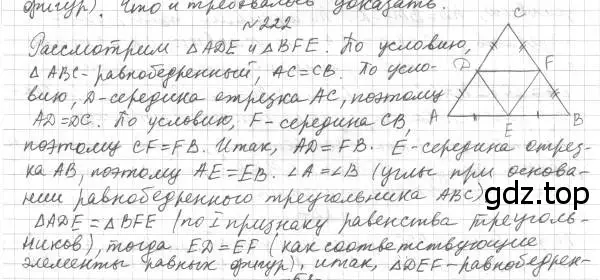 фигур). Что и требовалось доказать.
№222
Рассмотрим △ADE и △BFE. По условию,
△ABC - равнобедренный, AC=CB. По усло-
вию, D-середина отрезка AC, поэтому
AD=DC. По условию, F-середина CB,
поэтому CF=FB. Итак, AD=FB. E-середина отрез-
ка AB, поэтому AE=EB. ∠A=∠B (углы при основа-
нии равнобедренного треугольника ABC)
△ADE=△BFE (по I признаку равенства треуголь-
ников), тогда ED=EF (как соответствующие
элементы равных фигур), итак, △DEF-равнобедрен-
C
D
F
A
E
B
gdz.top